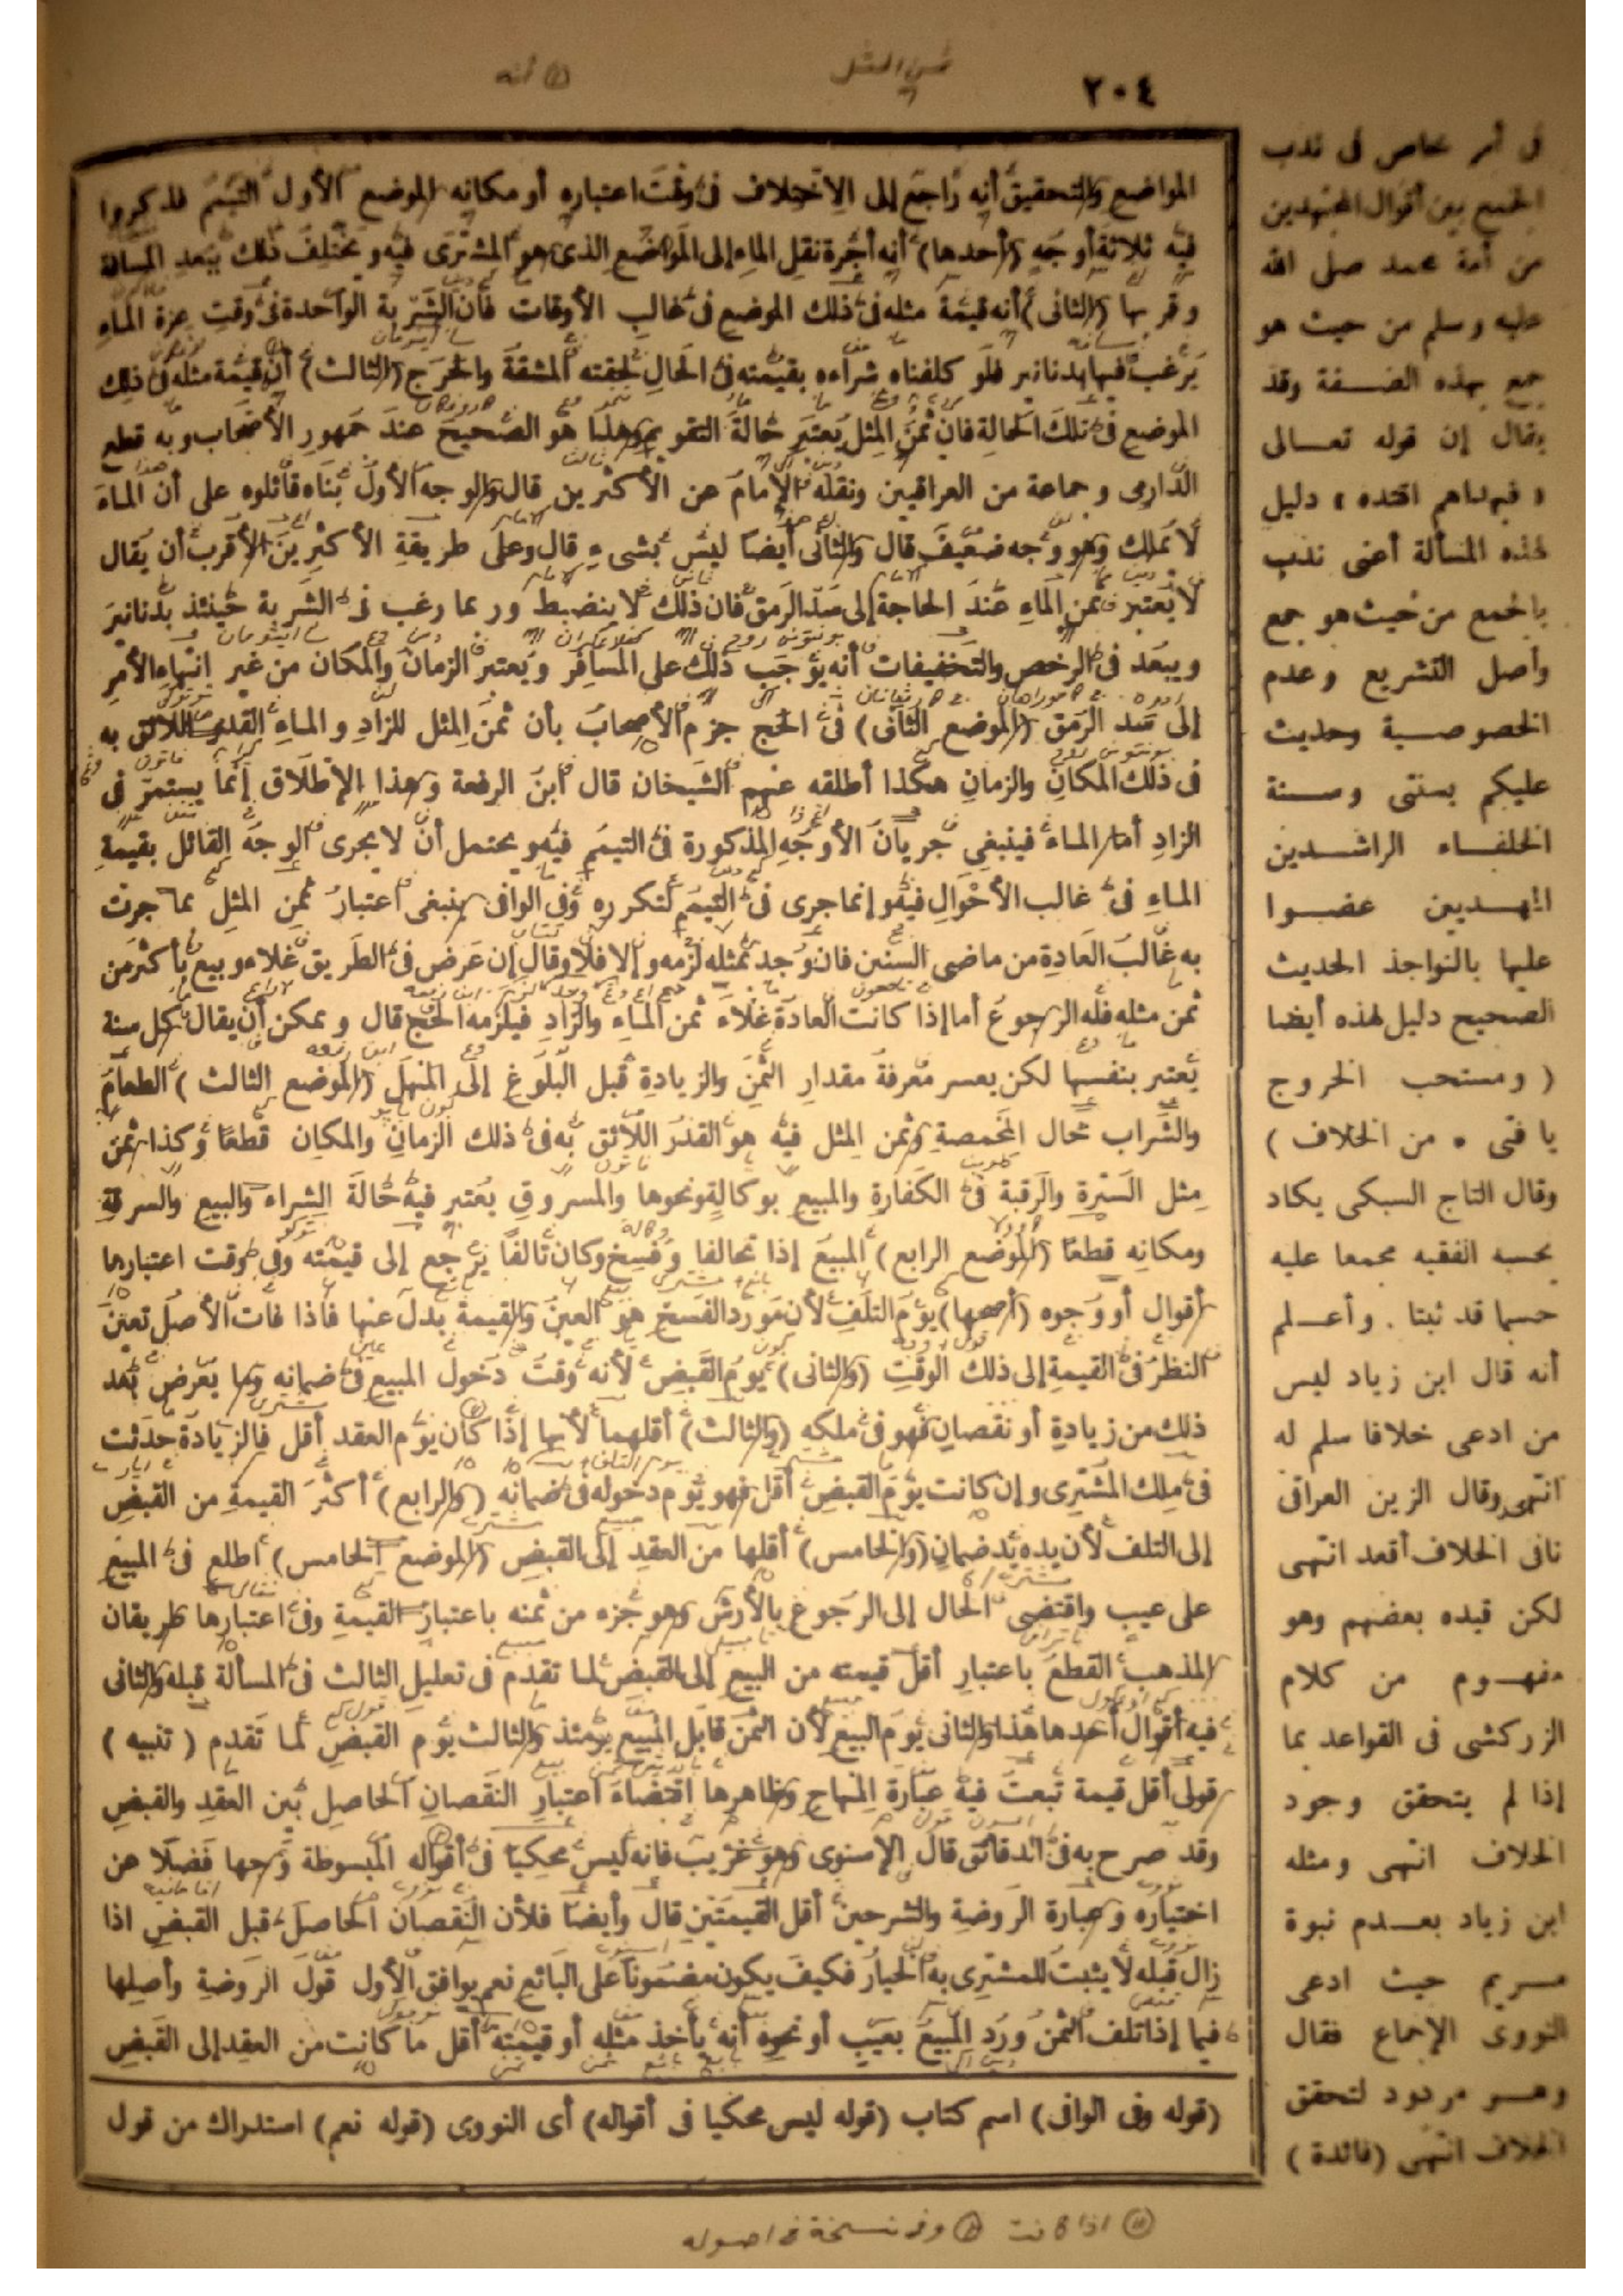 ٢٠٤
ثمن المثل
أنه
المواضع والتحقيق أنه راجع إلى الاختلاف فى وقت اعتباره أو مكانه الموضع الأول التيمم فذكروا
فيه ثلاثة أوجه (أحدها) أنه أجرة نقل الماء إلى الموضع الذى هو المشترى فيه ويختلف ذلك ببعد المسافة
وقربها (الثانى) أنه قيمة مثله فى ذلك الموضع فى غالب الأوقات فان الشربة الواحدة فى وقت عزة الماء
يرغب فيها بدنانير فلو كلفناه شراءه بقيمته فى الحال لحقته المشقة والحرج (الثالث) أن قيمة مثله فى ذلك
الموضع فى تلك الحالة فان ثمن المثل يعتبر حالة التقويم وهذا هو الصحيح عند جمهور الأصحاب وبه قطع
الدارمى وجماعة من العراقيين ونقله الإمام عن الأكثرين قال والوجه الأول بناه قائلوه على أن الماء
لا يملك وهو وجه ضعيف قال والثانى أيضا ليس بشىء قال وعلى طريقة الأكثرين الأقرب أن يقال
لا يعتبر ثمن الماء عند الحاجة إلى سد الرمق فان ذلك لا ينضبط وربما رغب فى الشربة حينئذ بدنانير
ويبعد فى الرخص والتخفيفات أنه يوجب ذلك على المسافر ويعتبر الزمان والمكان من غير انتهاء الأمر
إلى سد الرمق (الموضع الثانى) فى الحج جزم الأصحاب بأن ثمن المثل للزاد والماء القدر اللائق به
فى ذلك المكان والزمان هكذا أطلقه عنهم الشيخان قال ابن الرفعة وهذا الإطلاق إنما يستمر فى
الزاد أما الماء فينبغى جريان الأوجه المذكورة فى التيمم فيه ويحتمل أن لا يجرى الوجه القائل بقيمة
الماء فى غالب الأحوال فيه وإنما جرى فى التيمم لتكرره وفى الوافى ينبغى اعتبار ثمن المثل بما جرت
به غالب العادة من ماضى السنين فان وجد بمثله لزمه وإلا فلا وقال إن عرض فى الطريق غلاء وبيع بأكثر من
ثمن مثله فله الرجوع أما إذا كانت العادة غلاء ثمن الماء والزاد فيلزمه الحج قال ويمكن أن يقال كل سنة
يعتبر بنفسها لكن يعسر معرفة مقدار الثمن والزيادة قبل البلوغ إلى المنهل (الموضع الثالث) الطعام
والشراب حال المخمصة وثمن المثل فيه هو القدر اللائق به فى ذلك الزمان والمكان قطعا وكذا ثمن
مثل السترة والرقبة فى الكفارة والمبيع بوكالة ونحوها والمسروق يعتبر فيه حالة الشراء والبيع والسرقة
ومكانه قطعا (الموضع الرابع) المبيع إذا تحالفا وفسخ وكان تالفا يرجع إلى قيمته وفى وقت اعتبارها
أقوال أو وجوه (أصحها) يوم التلف لأن مورد الفسخ هو العين والقيمة بدل عنها فاذا فات الأصل تعين
النظر فى القيمة إلى ذلك الوقت (والثانى) يوم القبض لأنه وقت دخول المبيع فى ضمانه وما يعرض بعد
ذلك من زيادة أو نقصان فهو فى ملكه (والثالث) أقلهما لأنها إذا كان يوم العقد أقل فالزيادة حدثت
فى ملك المشترى وإن كانت يوم القبض أقل فهو يوم دخوله فى ضمانه (والرابع) أكثر القيمة من القبض
إلى التلف لأن يده يد ضمان (والخامس) أقلها من العقد إلى القبض (الموضع الخامس) اطلع فى المبيع
على عيب واقتضى الحال إلى الرجوع بالأرش وهو جزء من ثمنه باعتبار القيمة وفى اعتبارها طريقان
المذهب القطع باعتبار أقل قيمته من البيع إلى القبض لما تقدم فى تعليل الثالث فى المسألة قبله والثانى
فيه أقوال أحدها هذا والثانى يوم البيع لأن الثمن قابل المبيع يومئذ والثالث يوم القبض لما تقدم (تنبيه)
قولى أقل قيمة تبعت فيه عبارة المنهاج وظاهرها اقتضاء اعتبار النقصان الحاصل بين العقد والقبض
وقد صرح به فى الدقائق قال الإسنوى وهو غريب فانه ليس محكيا فى أقواله المبسوطة وجها فضلا عن
اختياره وعبارة الروضة والشرحين أقل القيمتين قال وأيضا فلأن النقصان الحاصل قبل القبض اذا
زال قبله لا يثبت للمشترى به الخيار فكيف يكون مضمونا على البائع نعم يوافق الأول قول الروضة وأصلها
فيما إذا تلف الثمن ورد المبيع بعيب أو نحوه أنه يأخذ مثله أو قيمته أقل ما كانت من العقد إلى القبض
(قوله وفى الوافى) اسم كتاب (قوله ليس محكيا فى أقواله) أى النووى (قوله نعم) استدراك من قول
اذا كانت وفى نسخة فى اصوله
فى أمر خاص فى ندب
الجمع بين أقوال المجتهدين
من أمة محمد صلى الله
عليه وسلم من حيث هو
جمع بهذه الصفة وقد
يقال إن قوله تعالى
« فبهداهم اقتده » دليل
لهذه المسألة أعنى ندب
بالجمع من حيث هو جمع
وأصل التشريع وعدم
الخصوصية وحديث
عليكم بسنتى وسنة
الخلفاء الراشدين
المهديين عضوا
عليها بالنواجذ الحديث
الصحيح دليل لهذه أيضا
( ومستحب الخروج
يا فتى • من الخلاف )
وقال التاج السبكى يكاد
يحسبه الفقيه مجمعا عليه
حسبما قد ثبتا . وأعلم
أنه قال ابن زياد ليس
من ادعى خلافا سلم له
انتهى وقال الزين العراقى
نافى الخلاف أقعد انتهى
لكن قيده بعضهم وهو
مفهوم من كلام
الزركشى فى القواعد بما
إذا لم يتحقق وجود
الخلاف انتهى ومثله
ابن زياد بعدم نبوة
مريم حيث ادعى
النووى الإجماع فقال
وهو مردود لتحقق
الخلاف انتهى (فائدة)